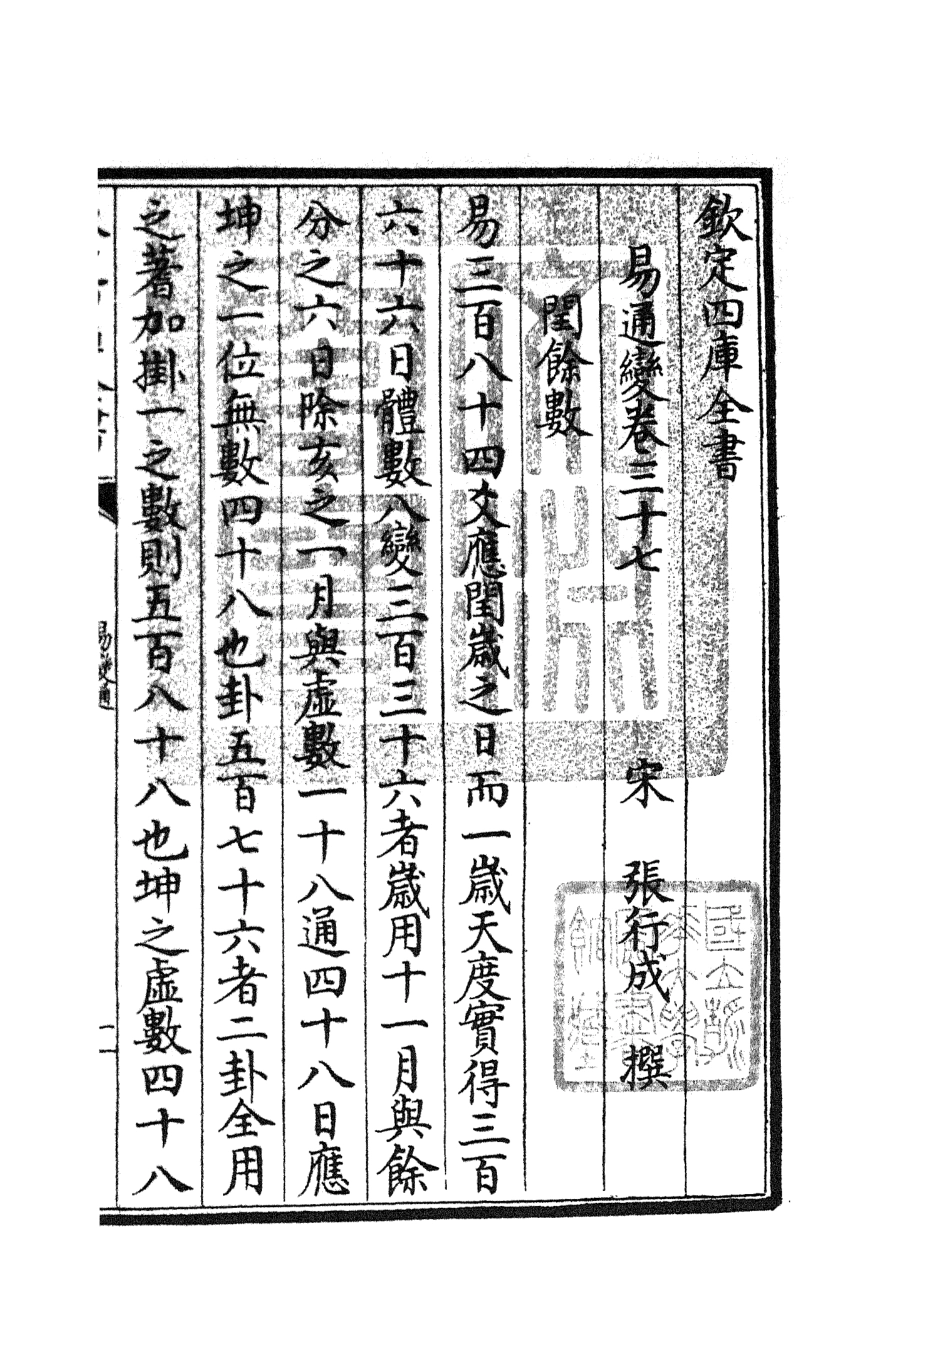 欽定四庫全書
易通變卷三十七　宋　張行成　撰
閏餘數
易三百八十四爻應閏嵗之日而一嵗天度實得三百
六十六日體數八變三百三十六者嵗用十一月與餘
分之六日除亥之一月與虛數一十八通四十八日應
坤之一位無數四十八也卦五百七十六者二卦全用
之蓍加掛一之數則五百八十八也坤之虛數四十八